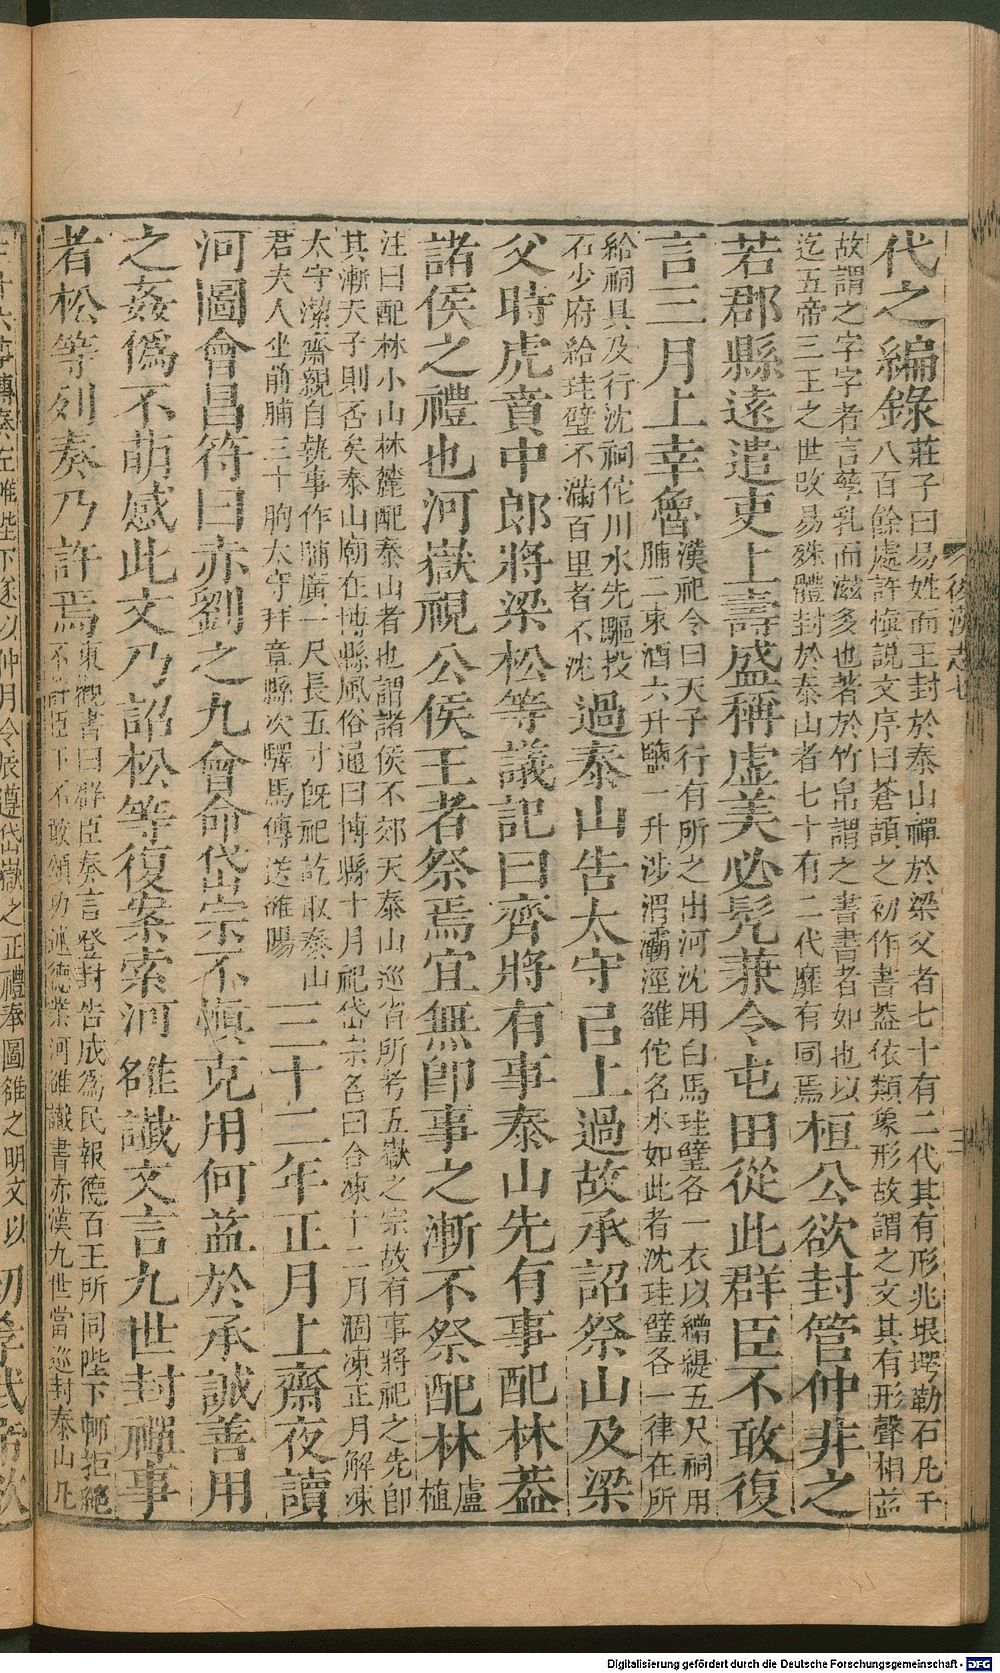 代之編錄
莊子曰易姓而王封於泰山禪於梁父者七十有二代其有形兆垠堮勒石凡千
八百餘處許慎說文序曰蒼頡之初作書蓋依類象形故謂之文其有形聲相益
故謂之字字者言孳乳而滋多也著於竹帛謂之書書者如也以
迄五帝三王之世改易殊體封於泰山者七十有二代靡有同焉
桓公欲封管仲非之
若郡縣遠遣吏上壽盛稱虛美必髠兼令屯田從此群臣不敢復
言三月上幸魯
漢祀令曰天子行有所之出河沈用白馬珪璧各一衣以繒緹五尺祠用
脯二束酒六升鹽一升涉渭灞涇雒佗名水如此者沈珪璧各一律在所
給祠具及行沈祠佗川水先驅投
石少府給珪璧不滿百里者不沈
過泰山告太守㠯上過故承詔祭山及梁
父時虎賁中郎將梁松等議記曰齊將有事泰山先有事配林蓋
諸侯之禮也河嶽視公侯王者祭焉宜無即事之漸不祭配林
盧
植
注曰配林小山林麓配泰山者也謂諸侯不郊天泰山巡省所考五嶽之宗故有事將祀之先即
其漸天子則否矣泰山廟在博縣風俗通曰博縣十月祀岱宗名曰合凍十二月涸凍正月解凍
太守潔齋親自執事作脯廣一尺長五寸既祀訖取泰山
君夫人坐前脯三十朐太守拜章縣次驛馬傳送雒陽
三十二年正月上齋夜讀
河圖會昌符曰赤劉之九會命岱宗不慎克用何益於承誠善用
之姦僞不萌感此文乃詔松等復案索河雒讖文言九世封禪事
者松等列奏乃許焉
東觀書曰群臣奏言登封告成爲民報德百王所同陛下輒拒絕
不許臣下不敢頌功述德業河雒讖書赤漢九世當巡封泰山凡
陛下遂以仲月令辰遵岱嶽之正禮奉圖雒之明文以
初孝武帝欲
後漢志七
三
Digitalisierung gefördert durch die Deutsche Forschungsgemeinschaft - DFG